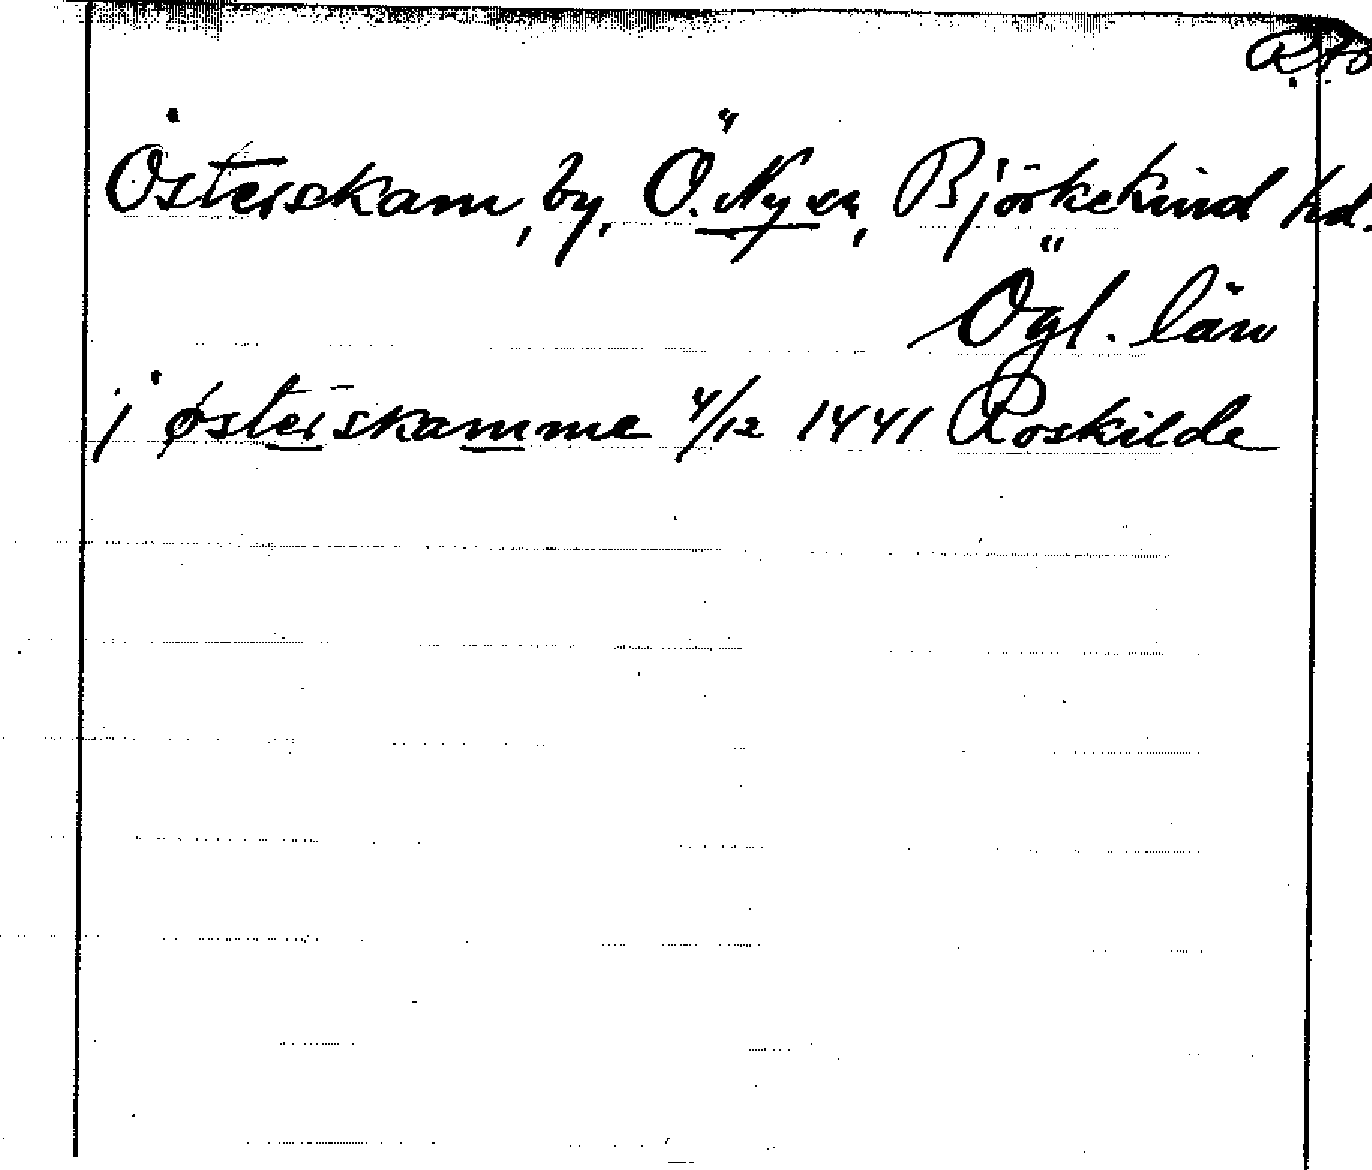 Österskam, by, Ö. Ny sn, Björkekind hd.
Ögl. län
j østerskamme 4/12 1441 Roskilde